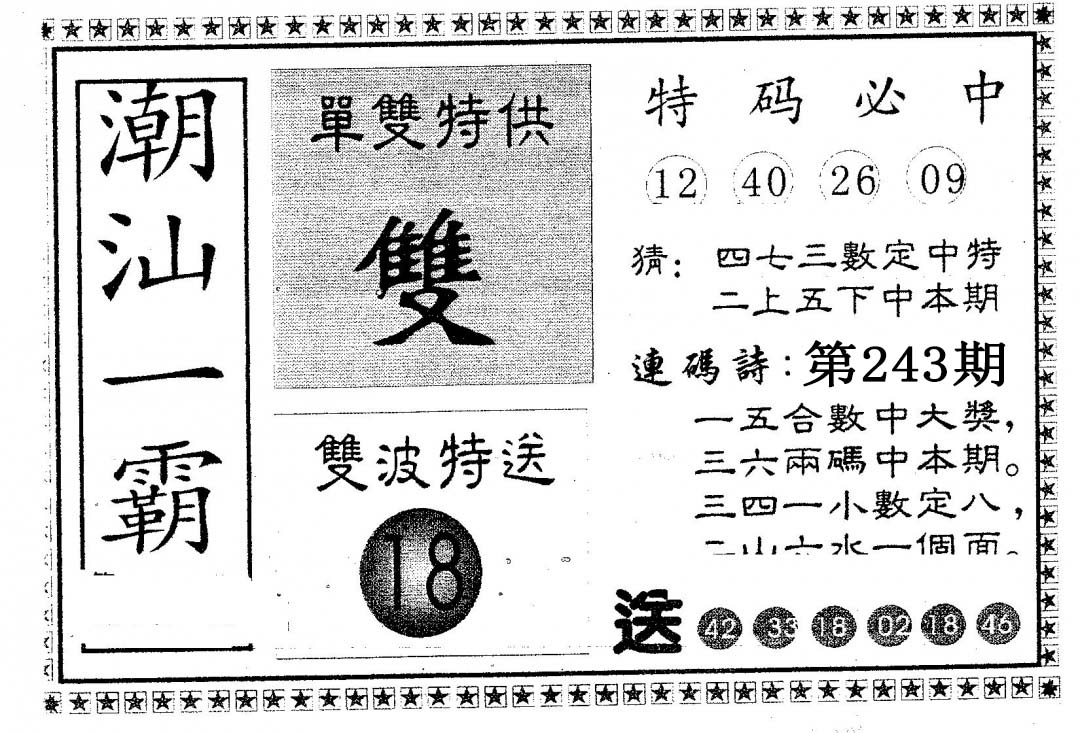 潮汕一霸
單雙特供
雙
雙波特送
18
特码必中
12 40 26 09
猜：四七三數定中特
二上五下中本期
連碼詩：第243期
一五合數中大獎，
三六兩碼中本期。
三四一小數定八，
二山六水一個面。
送 42 33 18 02 18 46